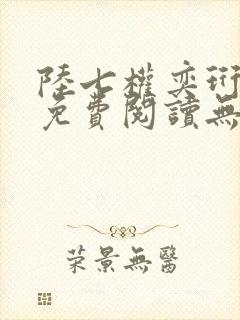 陸七權奕珩
免費閱讀無
荣景無醫